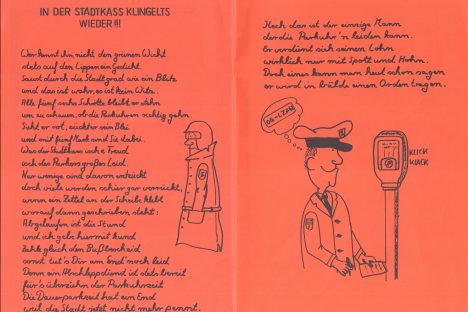 IN DER STADTKASS KLINGELTS
WIEDER!!!
Wer kennt ihn nicht den grünen Wicht
stets auf den Lippen ein Gedicht.
Saust durch die Stadt grad wie ein Blitz
und das ist wahr, es ist kein Witz.
Alle fünf sechs Schritte bleibt er stehn
um zu schauen, ob die Parkuhren richtig gehn.
Sieht er rot, zückt er sein Blei
und mit fünf Mark sind Sie dabei.
Was der Stadtkass ich a Freud
isch des Parkers großes Leid
Nur wenige sind davon entzückt
doch viele werden schier gar verrückt,
wenn ein Zettel an der Scheibe klebt
worauf dann geschrieben steht:
Abgelaufen ist die Stund
und ich gebe hiermit kund
Zahle gleich den Bußbescheid
sonst tut's Dir am End noch leid
Denn ein Abschleppdienst ist dats bereit
für's überziehn der Parkuhrzeit
Die Dauerparkerei hat ein End
weil die Stadt jetzt nicht mehr pennt.
Hock das ist der einzige Mann
der die Parkuhr'n leiden kann.
Er verdient sich seinen Lohn
wirklich nur mit Spott und Hohn.
Doch eines kann man heut schon sagen
er wird in bälde einen Orden tragen.
OG-LZAN
KLICK
KLACK